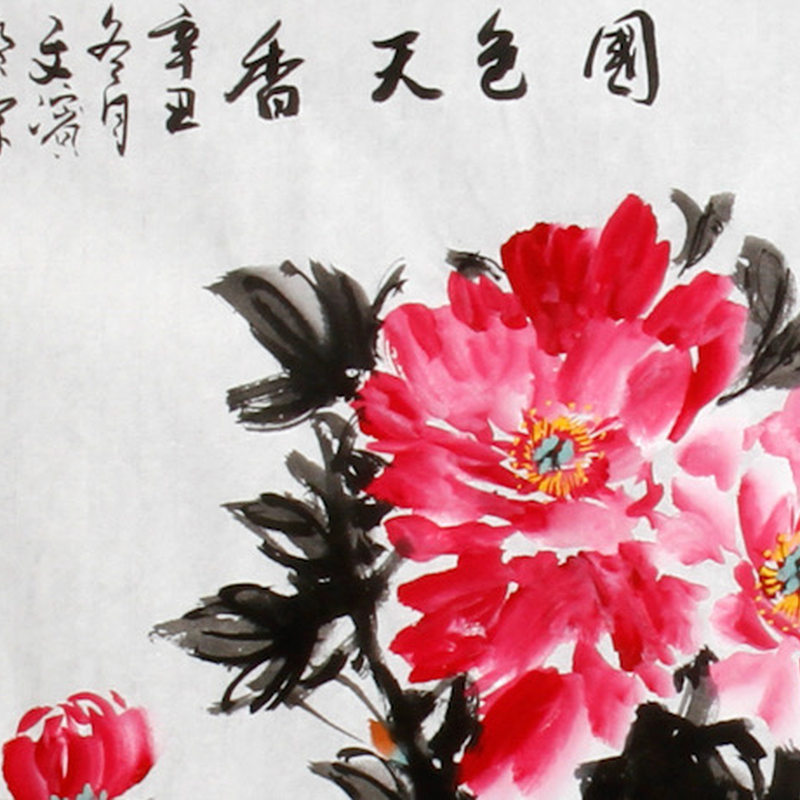 國色天香
辛丑
冬月
文濱